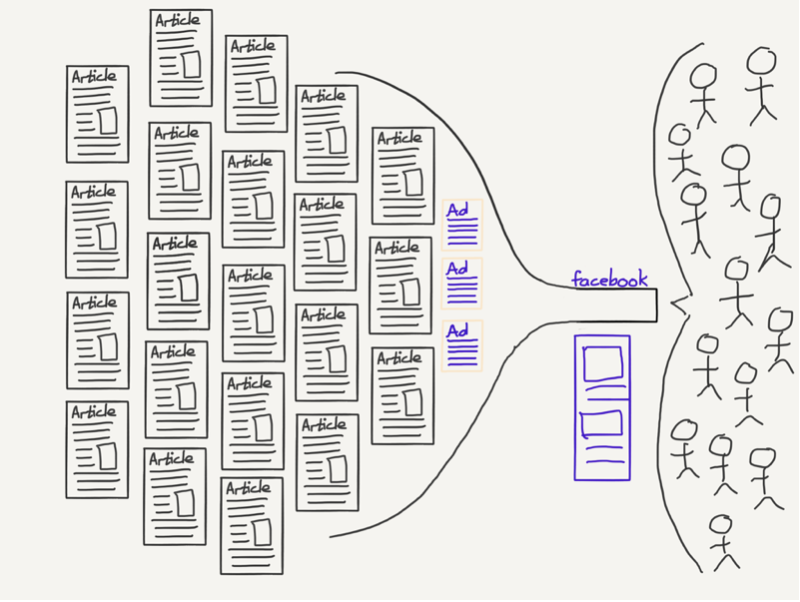 Article
Article
Article
Article
Article
Article
Article
Article
Article
Article
Article
Article
Article
Article
Article
Article
Article
Article
Article
Article
Article
Ad
Ad
Ad
facebook